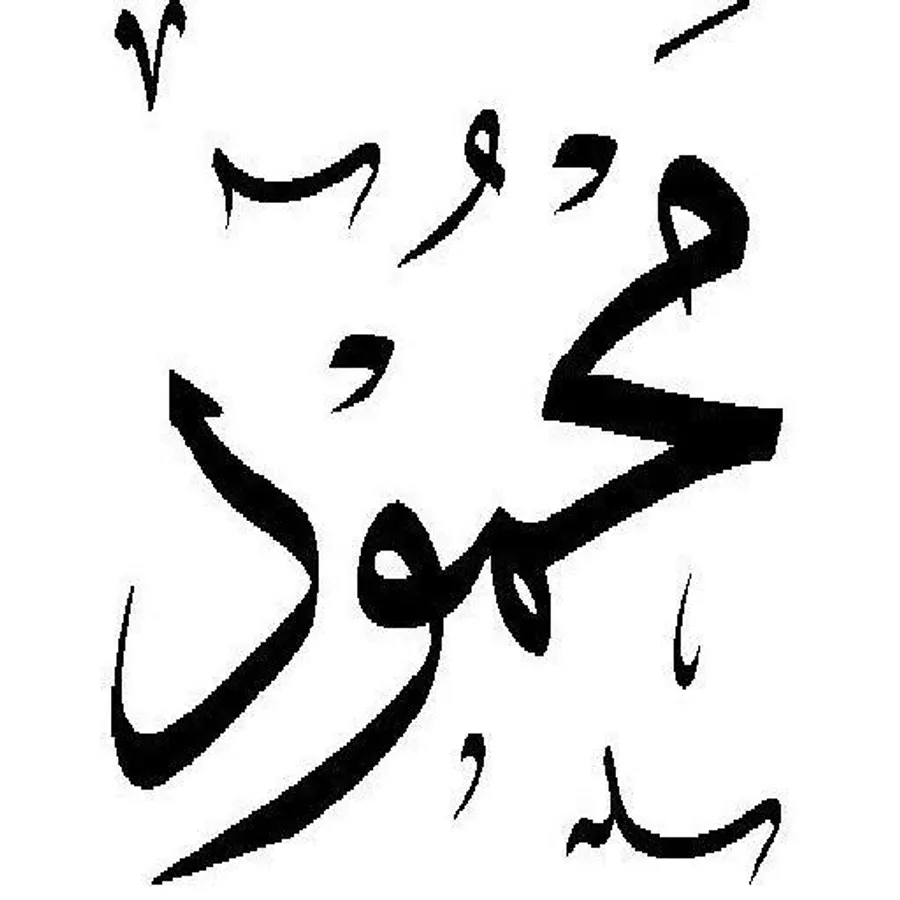 محمود